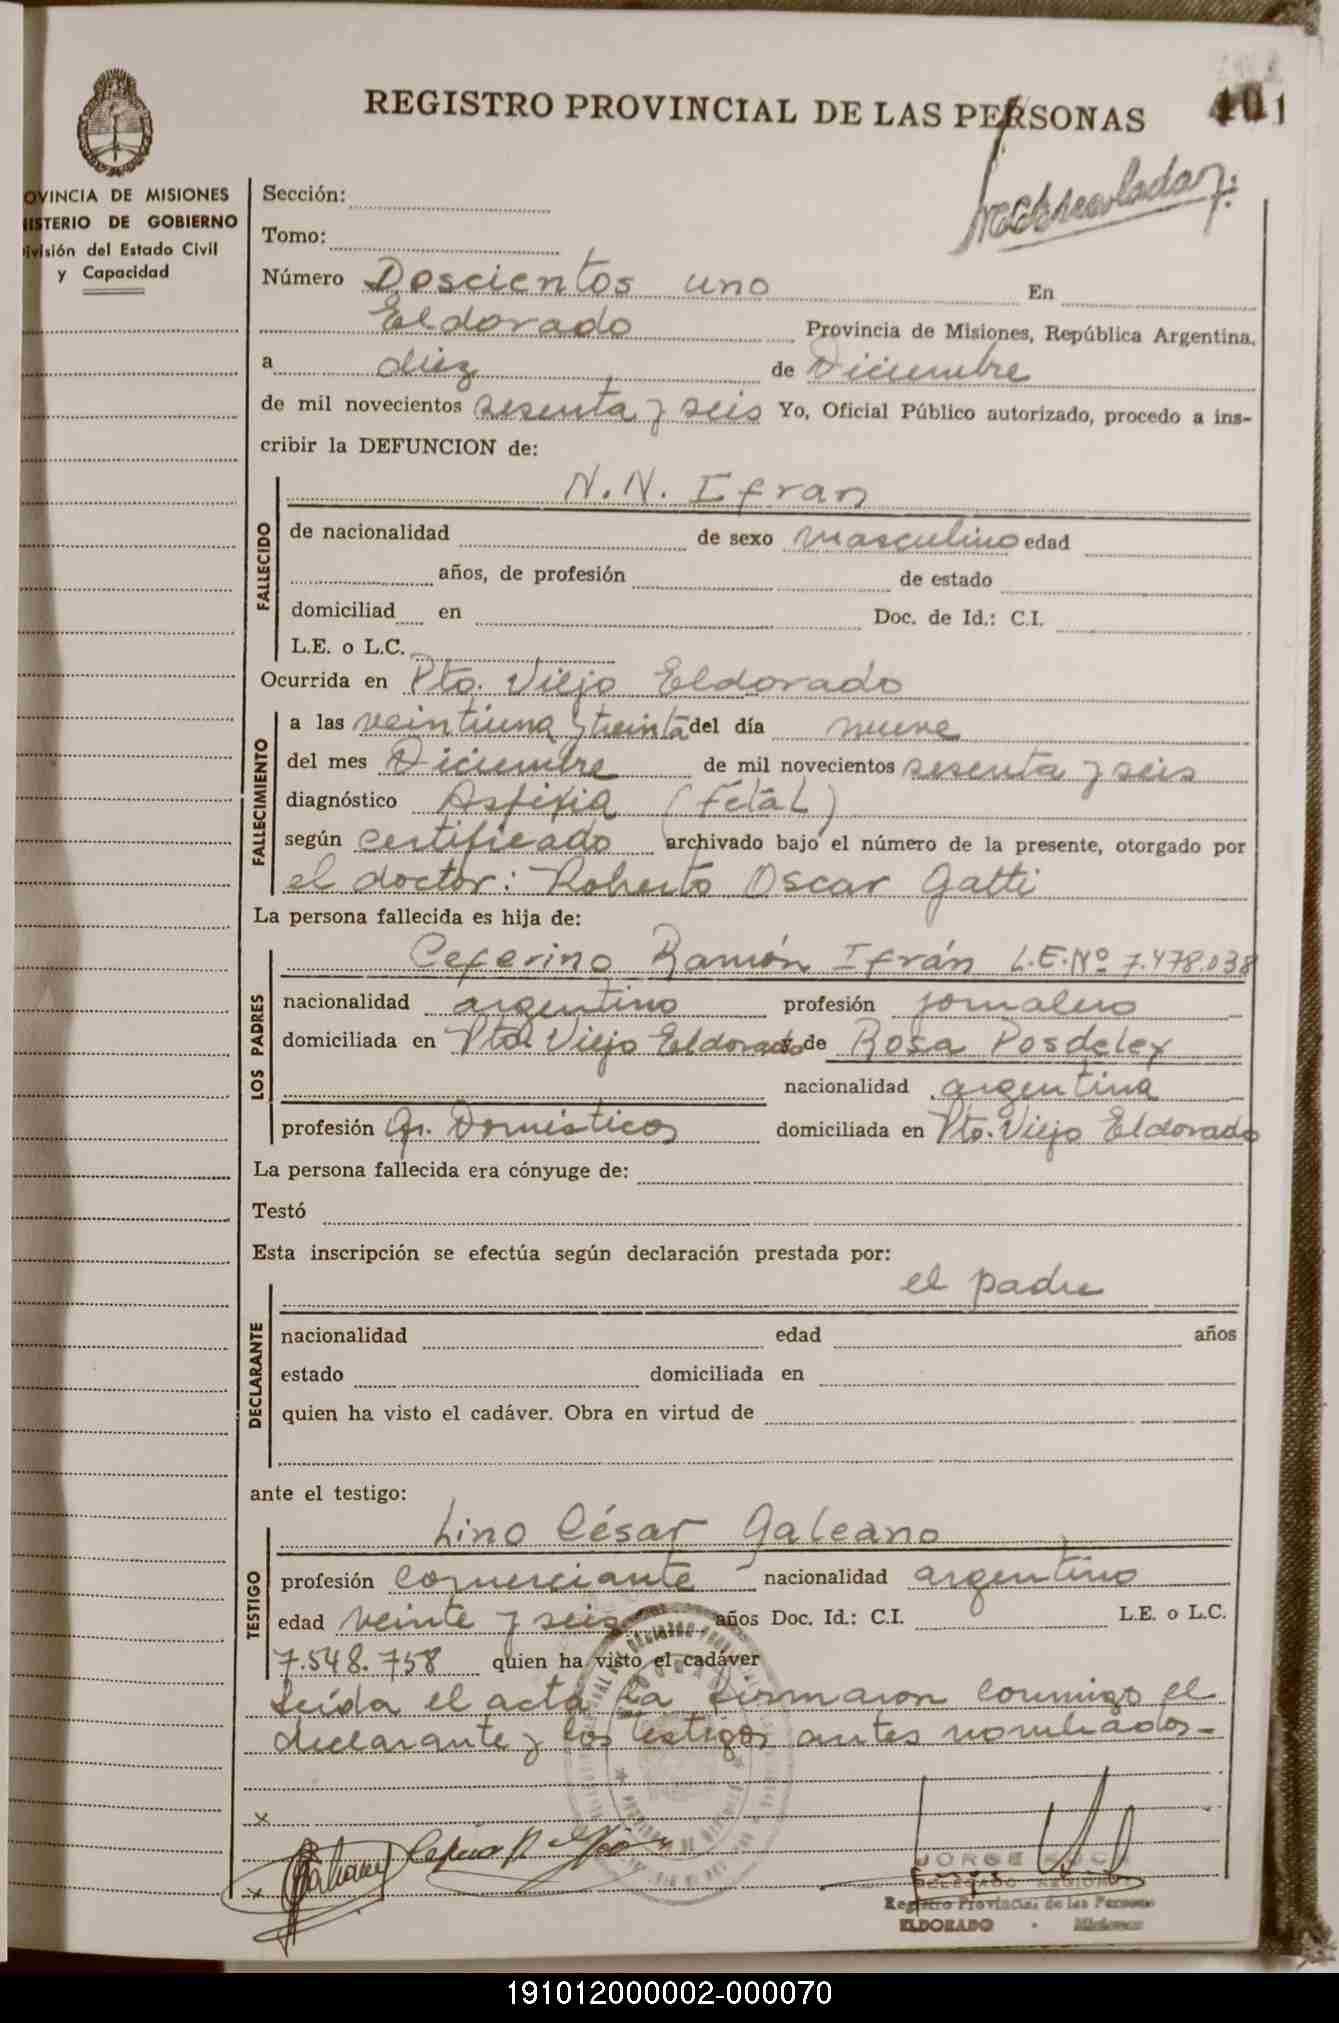 REGISTRO PROVINCIAL DE LAS PERSONAS
OVINCIA DE MISIONES
ISTERIO DE GOBIERNO
ivisión del Estado Civil
y Capacidad
Sección:
Tomo:
Número Doscientos uno En
Eldorado Provincia de Misiones, República Argentina,
a diez de Diciembre
de mil novecientos sesenta y seis Yo, Oficial Público autorizado, procedo a ins-
cribir la DEFUNCION de:
N.N. Ifran
FALLECIDO
de nacionalidad de sexo masculino edad
años, de profesión de estado
domiciliad en Doc. de Id.: C.I.
L.E. o L.C.
Ocurrida en Pto. Viejo Eldorado
FALLECIMIENTO
a las veintiuna y treinta del día nueve
del mes Diciembre de mil novecientos sesenta y seis
diagnóstico Asfixia (Fetal)
según certificado archivado bajo el número de la presente, otorgado por
el doctor: Roberto Oscar Gatti
La persona fallecida es hija de:
LOS PADRES
Ceferino Ramón Ifrán L.E.Nº 7.478.038
nacionalidad argentino profesión jornalero
domiciliada en Pto. Viejo Eldorado y de Rosa Posdeley
nacionalidad argentina
profesión Q. Domésticos domiciliada en Pto. Viejo Eldorado
La persona fallecida era cónyuge de:
Testó
Esta inscripción se efectúa según declaración prestada por:
el padre
DECLARANTE
nacionalidad edad años
estado domiciliada en
quien ha visto el cadáver. Obra en virtud de
ante el testigo:
TESTIGO
Lino César Galeano
profesión comerciante nacionalidad argentino
edad veinte y seis años Doc. Id.: C.I. L.E. o L.C.
7.548.758 quien ha visto el cadáver
Leída el acta la firmaron conmigo el
declarante y los testigos antes nombrados-
x
x
JORGE
DELEGADO REGIONAL
Registro Provincial de las Personas
ELDORADO - Misiones
191012000002-000070